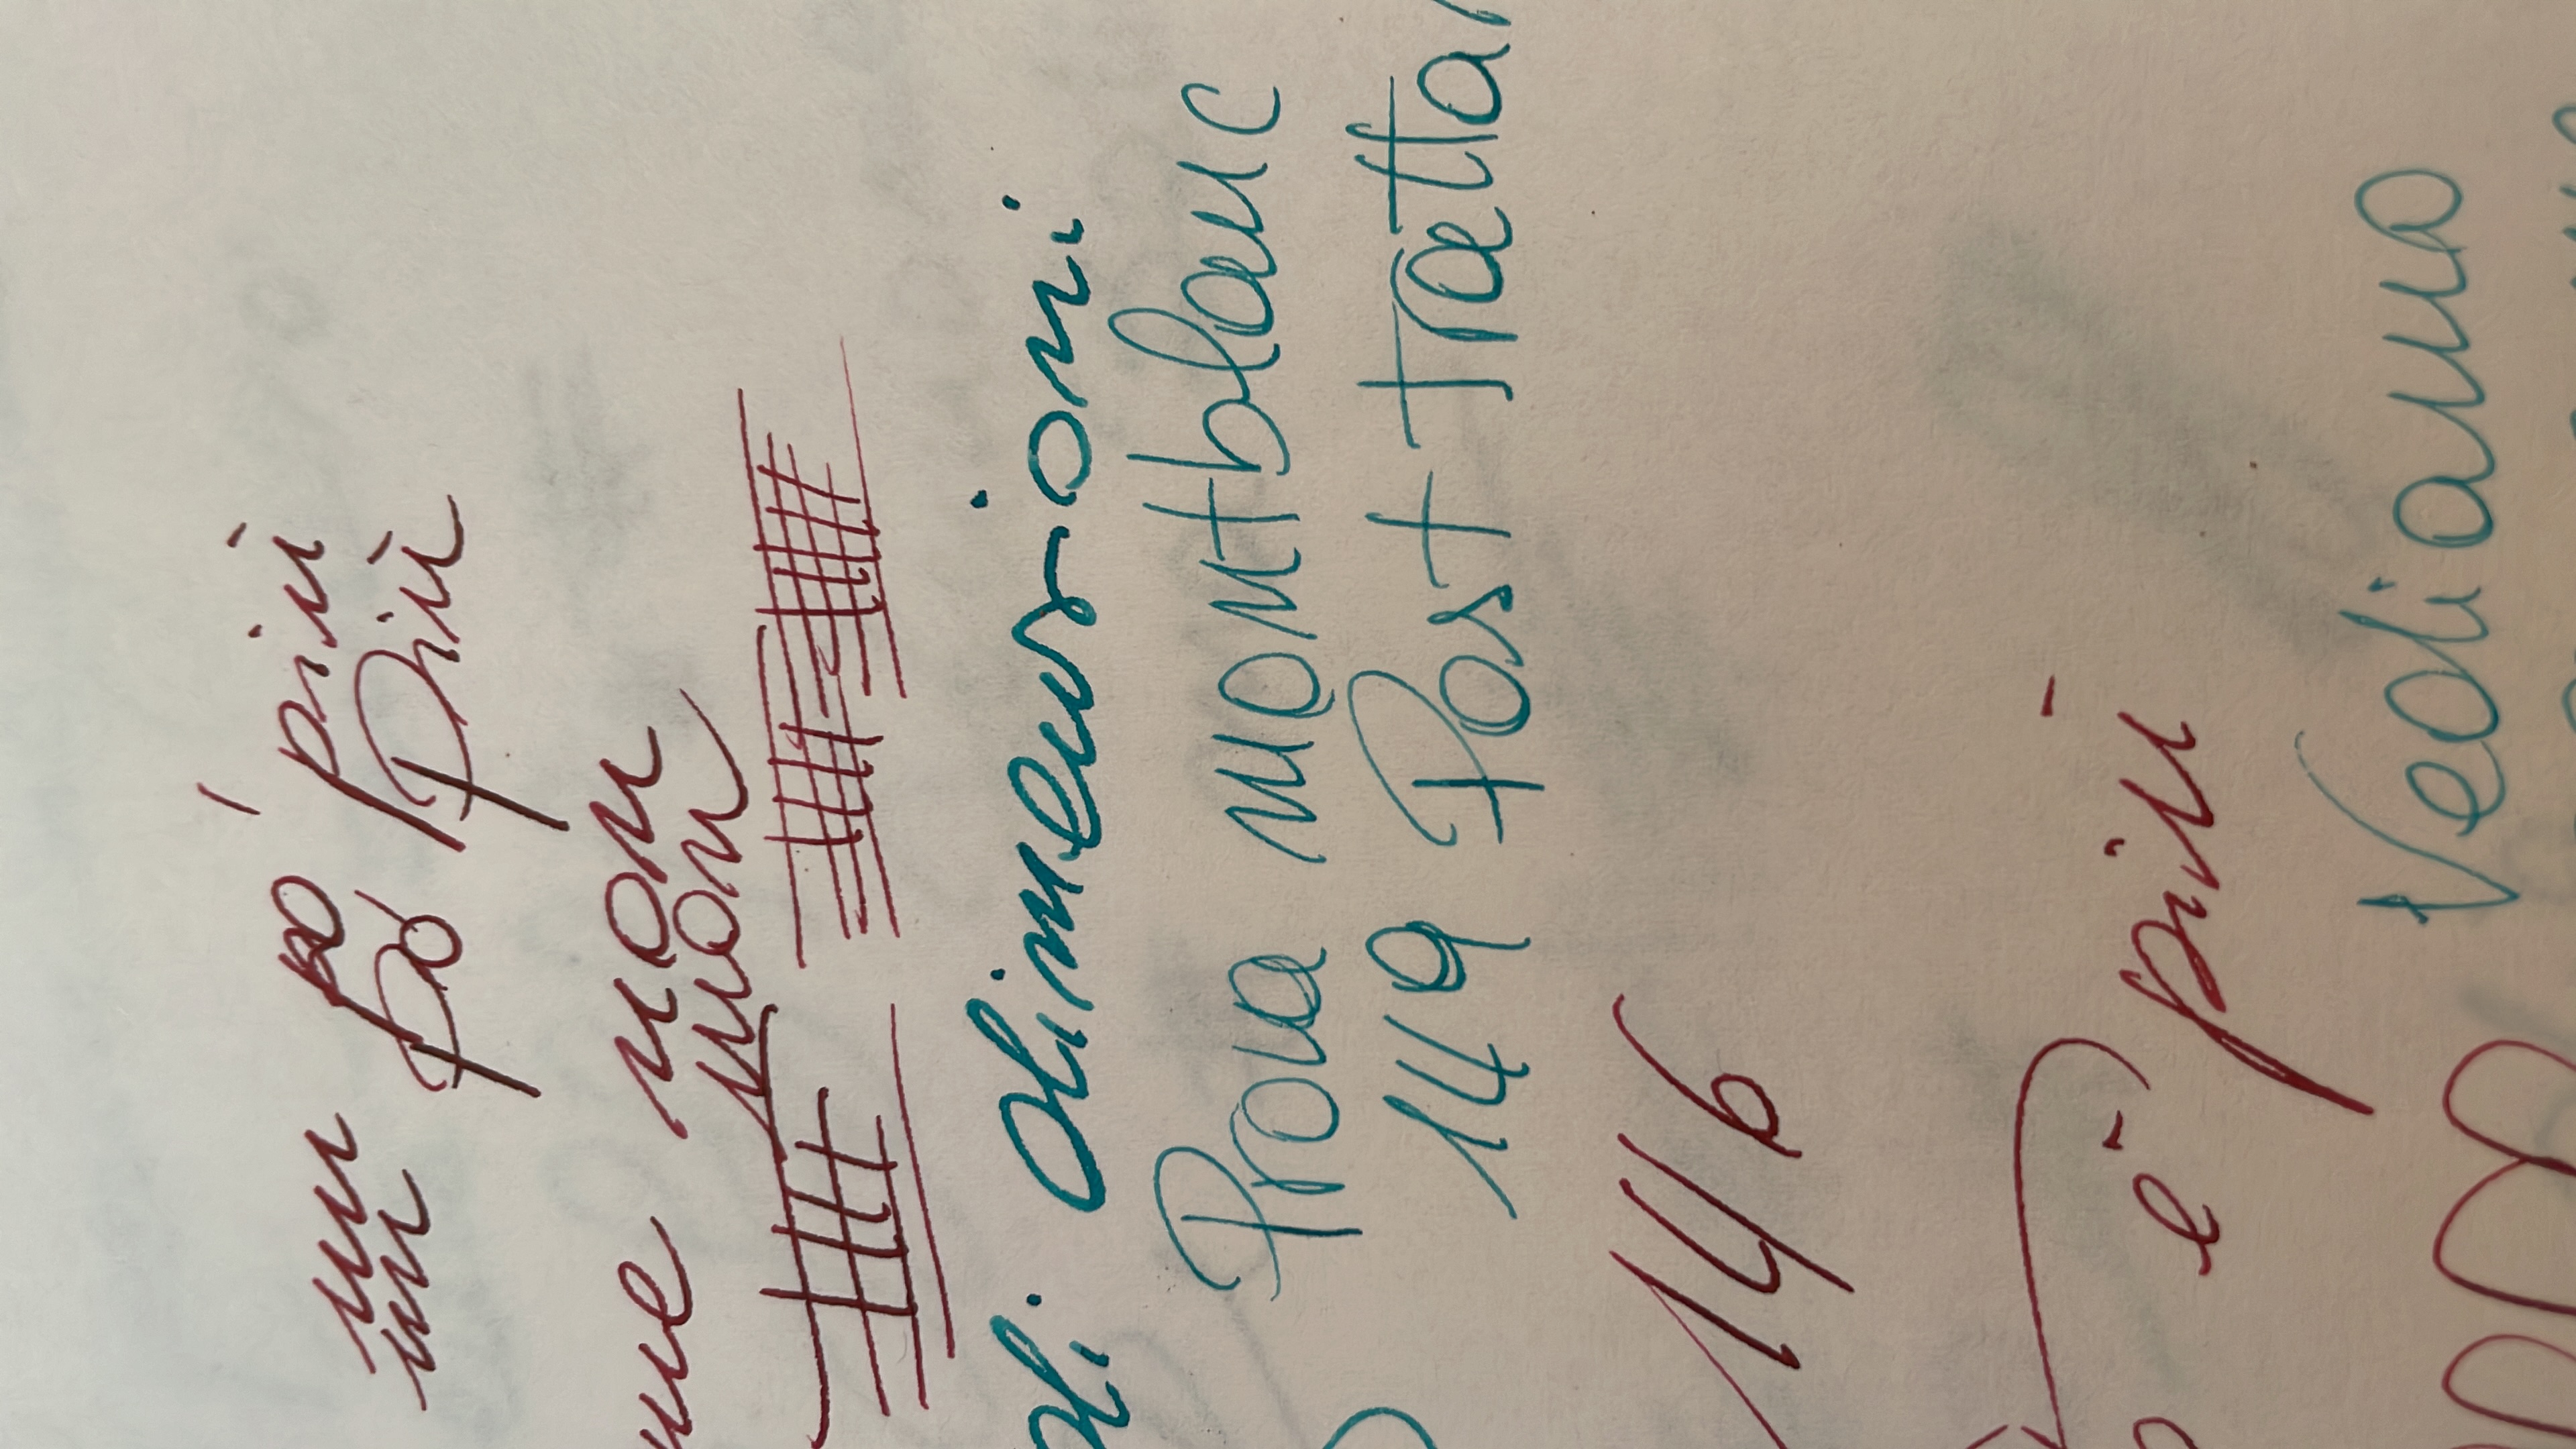 un pò più
un pò più
non
non
di dimensioni
Prova montblanc
149 Post trattar
146
è più
Vediamo